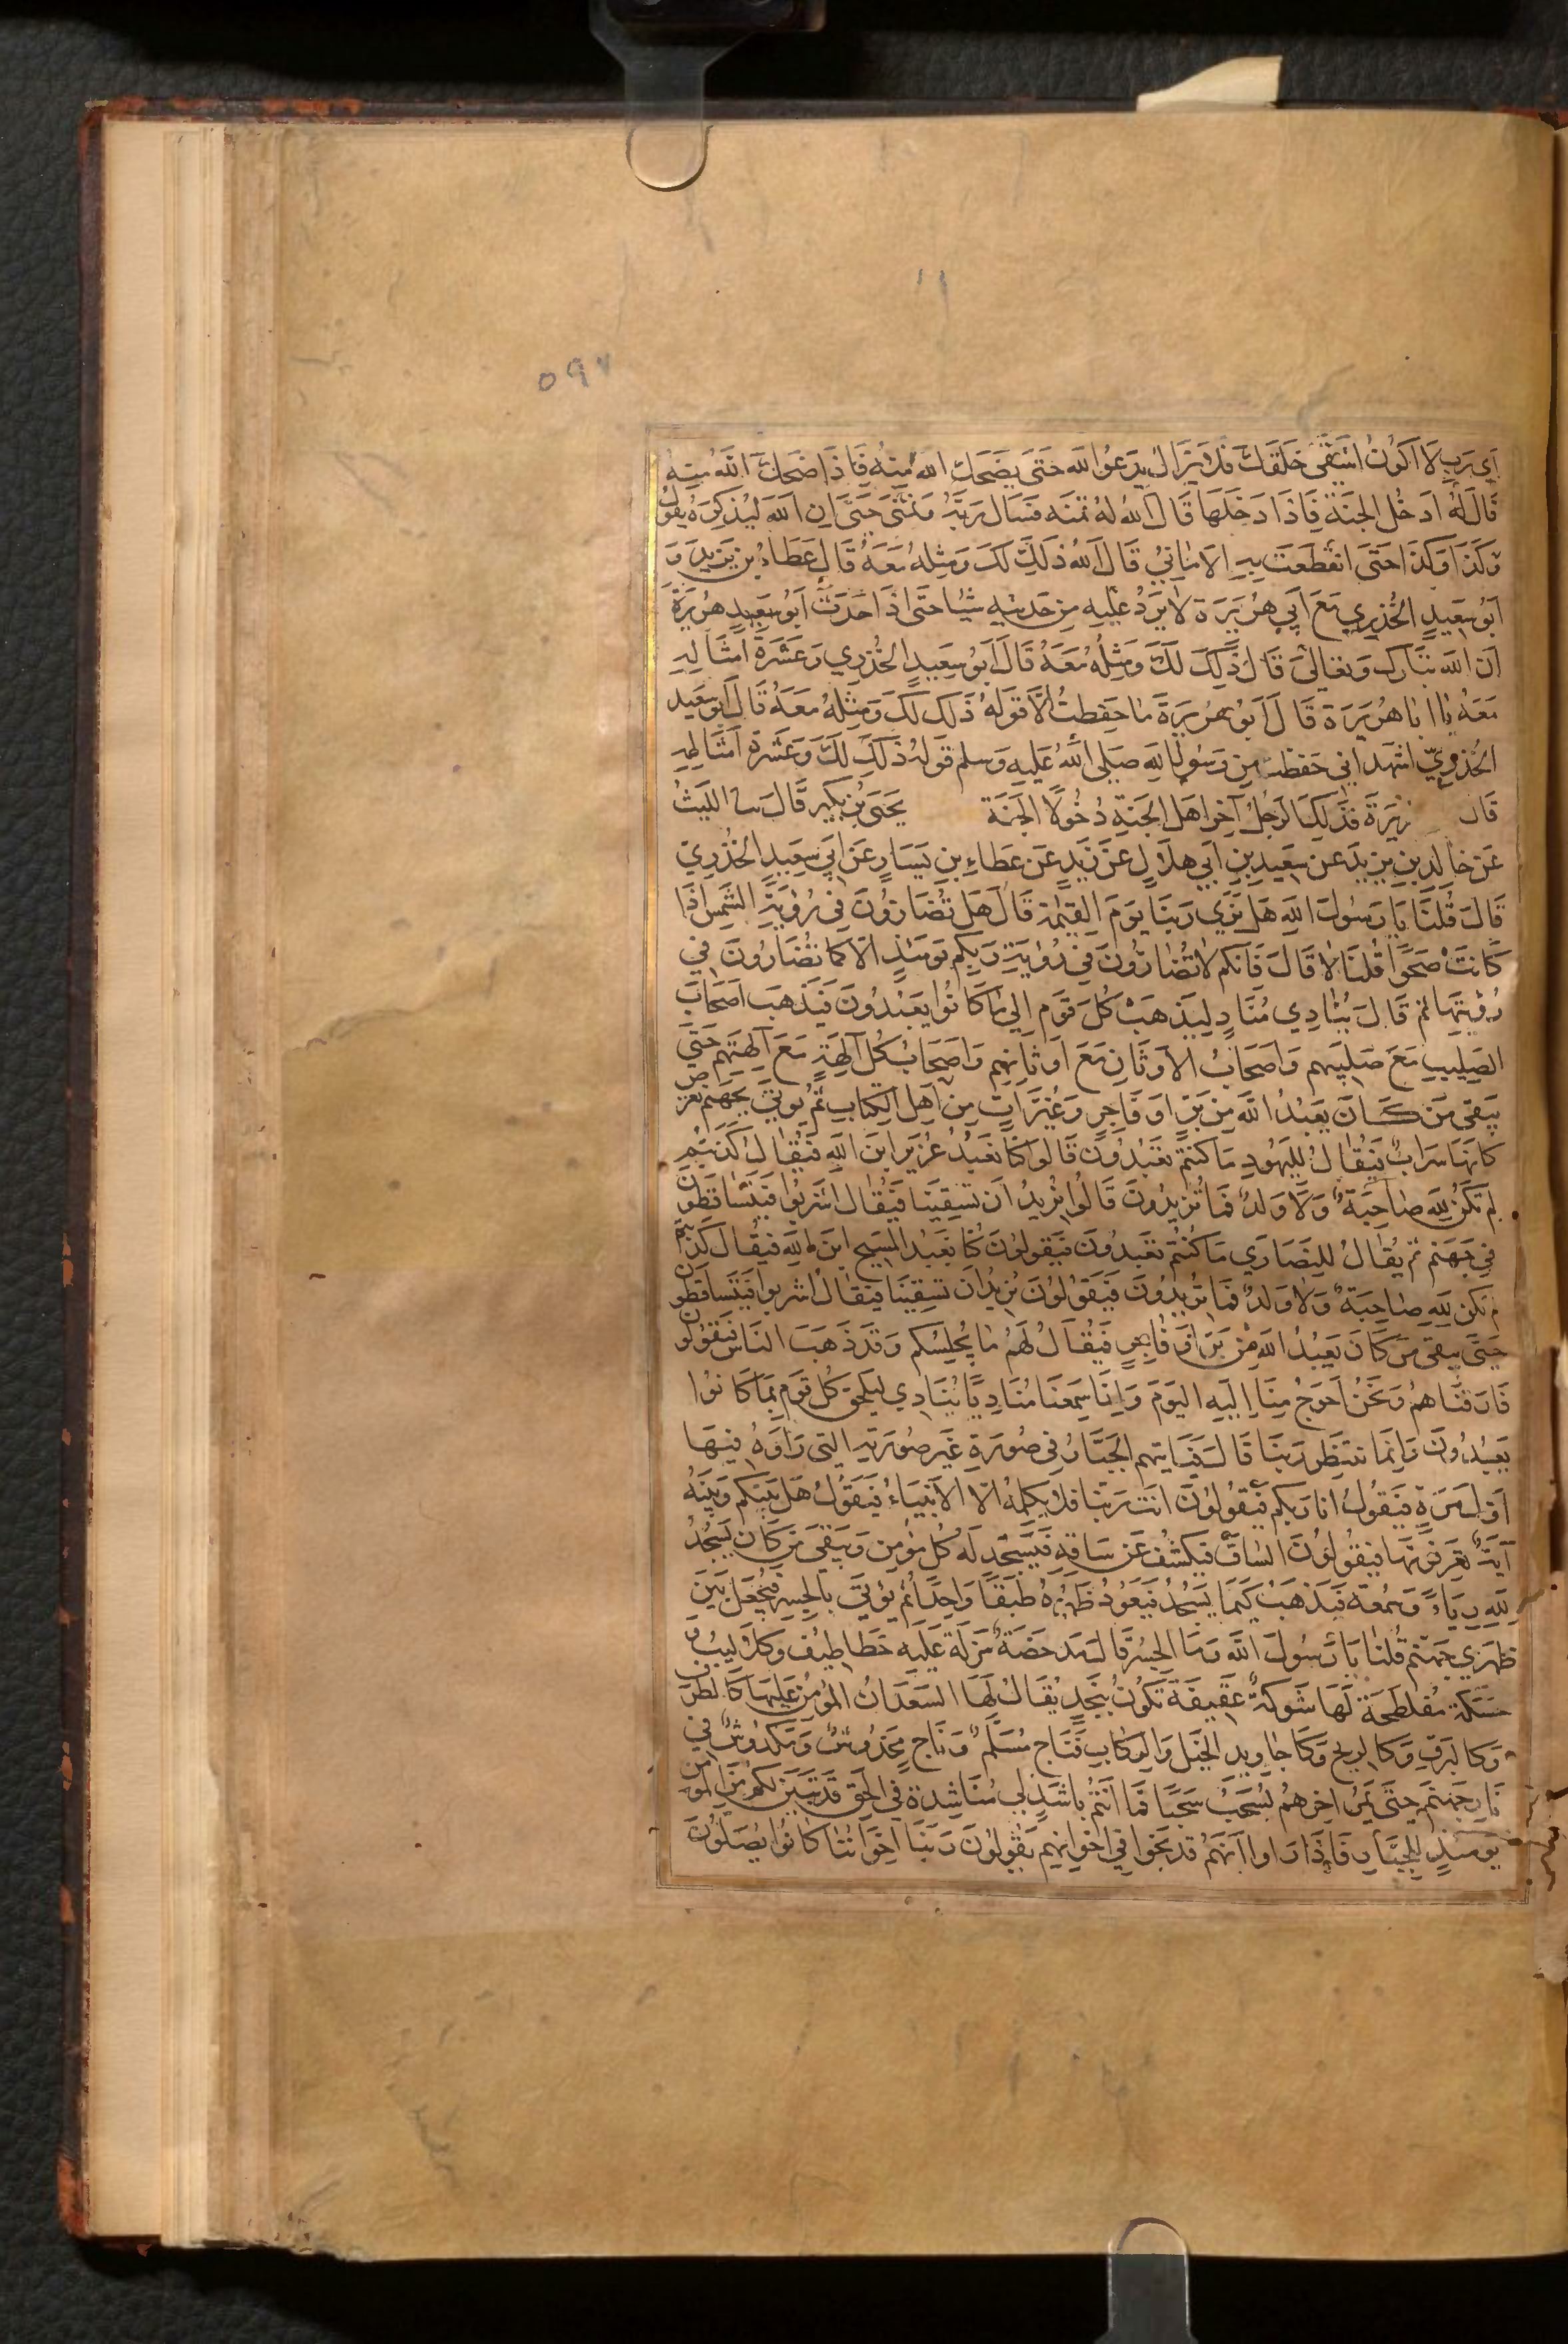 ١١
٥٩٧
اَي رَبِ لَا اَكُونُ اشْقَى خَلقِكَ فَلَا يَزَالُ يَدعُو الله حَتى يَضحَكَ الله مِنهُ فَاِذَا ضَحِكَ الله مِنهُ
قَالَ لَهُ ادخُل الجنَةَ فَاِذَا دَخَلَهَا قَالَ الله لهُ تمنه فسَال رَبَّهُ وَتمنَّى حَتى اِن الله لَيُذَكِرُهُ يقُولُ
وَكَذَا وَكذَا حَتَى انقَطَعَت بِهِ الامَانِيُ قَالَ الله ذلِكَ لَكَ وَمِثلهُ مَعَهُ قَالَ عَطَاءُ بن يَزِيدَ وَ
اَبُو سَعِيدٍ الخُدرِي مَعَ اَبِي هُرَيرَة لا يَرُدُ عَلَيهِ مِن حَديثِهِ شيًا حَتى اذَا حَدَثَ اَبُو سَعِيدٍ هُرَيرَةَ
اَن الله تَبَارك وَتعَالىَ قَالَ ذَلِكَ لَكَ وَمِثلُهُ مَعَهُ قَالَ اَبُو سَعِيدٍ الخُدرِي وَعَشَرَةُ اَمثَالِهِ
مَعَهُ يَا ابا هُرَيرَة قَالَ اَبُو هُرَيرَةَ مَا حَفِظتُ اِلَّا قولهُ ذَلك لَكَ وَمِثلهُ مَعَهُ قَالَ ابُو سَعِيد
الخُدرِيّ اشهَد انى حَفظت مِن رَسُول الله صَلى الله عَليهِ وَسلم قَولهُ ذَلِكَ لَكَ وَعَشَرة اَمثَالِهِ
قَال رَيرَةَ فذَلِكَ الرَجُلُ آخِر اهَل الجَنةِ دُخُولًا الجَنَةَ يَحيَى بن بُكَيرٍ قَالَ سا اللَيثُ
عَن خَالِد بن يزِيدَ عن سَعِيدِ بنِ اَبي هلَالٍ عَن زَيدٍ عَن عَطَاءِ بنِ يَسَارٍ عَن اَبِي سعِيدٍ الخُدرِيّ
قَالَ قُلنَا يَا رَسُولَ الله هَل نَرَي رَبنَا يومَ القِيمَة قَالَ هَل تُضَارُونَ فِي رُؤيَةِ الشَمسِ اذَا
كَانَت صَحوًا قُلنَا لا قَالَ فَانكم لا تُضَارُونَ فِي رُؤيَةِ رَبِكُم يَومَئِذٍ الّا كَمَا تُضَارُونَ في
رُؤيَتهَا ثم قَالَ يُنَادِي مُنَادٍ لِيَذهَب كُلُ قَومٍ اِلى مَا كَانُوا يَعبُدُونَ فَيَذهَب اَصحَابُ
الصَلِيبِ مَعَ صَلِيبِهم وَاصحَابُ الاَوثَانِ مَعَ اَوثَانِهِم وَاصحَابُ كُل آلِهةٍ مَعَ آلِهتِهِم حَتى
يَبقى مَن كَانَ يَعبُدُ الله مِن بَرٍ اَو فَاجِرٍ وَغُبَّرَاتٍ مِن اهِل الكِتَابِ ثُم يُوتَى بِجَهنَم تعرَضُ
كَانهَا سَرابٌ فَيُقَالُ لِليَهُودِ مَا كُنتُم تَعبُدُونَ قَالُوا كُنَّا نَعبُدُ عُزَير ابنَ الله فَيُقَالُ كَذَبتُم
لَم تَكُن لِلهِ صَاحِبَةٌ وَلَا وَلدٌ فَمَا تُرِيدُونَ قَالُوا نُرِيدُ اَن تَسقِيَنَا فَيُقَال اشرَبُوا فَيَتَسَاقَطُونَ
فِي جَهَنم ثم يُقَالُ لِلنَصَارَي مَا كُنتُم تعبُدُونَ فَيَقولُونَ كُنا نَعبُد المَسِيح ابنَ الله فيُقَال كَذبتُم
لم تكُن لِلهِ صَاحِبَةٌ وَلا وَلدٌ فَمَا تُرِيدُونَ فَيَقُولُونَ نُرِيدُ اَن تَسقِينَا فَيُقَالُ اشربوا فَيَتَسَاقَطُونَ
حَتَى يَبقى مَن كَانَ يَعبُدُ الله مِن بَرٍ اَو فَاجِرٍ فَيُقَالُ لَهُم مَا يُجلِسُكم وَقَد ذَهَبَ النَاسُ فَيَقُولُونَ
فَارَقنَاهُم وَنَحنُ اَحوَجُ مِنَا اِليهِ اليَومَ وَاِنَا سَمِعنَا مُنَادِيًا يُنَادِي لِيَلحَق كُل قَومٍ بِمَا كَانُوا
يَعبُدُونَ وَاِنمَا نَنتَظِر رَبنَا قَالَ فَيَاتيهم الجَبَّارُ فِي صُورَةٍ غَيرِ صُورَتِهِ التى رَاوهُ فِيهَا
اَوَلَ مَرةٍ فَيَقُولُ انا رَبكم فَيَقُولُونَ انتَ رَبنَا فَلا يُكلِمهُ الّا الاَنبِيَاءُ فَيَقُولُ هَل بَينَكُم وَبَينَهُ
آيَةٌ تَعرِفُونهَا فَيَقُولونَ السَاقُ فَيَكشِفُ عَن سَاقِهِ فَيَسجُد لَهُ كُل مُؤمِن وَيبقى مَن كَانَ يَسجُدُ
لِلهِ رِيَاءً وَسُمعَةً فَيَذهَبُ كَيمَا يَسجُدَ فَيَعُودُ ظَهرُهُ طَبَقًا وَاحِدًا ثُم يُؤتَى بِالجِسرِ فَيُجعَل بَينَ
ظَهرَي جَهنّم قُلنَا يَا رَسُولَ الله وَمَا الجِسرُ قَالَ مَدحَضَةٌ مَزَلَّةٌ عَلَيهِ خَطَاطِيفُ وَكلَالِيبُ وَ
حَسَكَة مُفَلطَحَةٌ لَهَا شَوكَةٌ عَقِيفَة تَكُونُ بِنَجدٍ يُقَالُ لَهَا السَعدَانُ المُؤمِنُ عَليهَا كَالطَرفِ
وَكالبَرقِ وَكَالرِيحِ وَكَاجَاوِيدِ الخَيل وَالركَابِ فَنَاجٍ مُسَلَّمٌ وَنَاجٍ مَخدُوشٌ وَمَكدُوسٌ فِي
نَارِ جَهَنّمَ حَتى يَمُرَ اخِرهُم يُسحَبُ سَحبًا فَمَا اَنتُم بِاشَدَ لِي مُنَاشَدَةً فِي الحَقِ قَد تَبَيَنَ لكُم مِنَ المُؤمِن
يَومَئِذٍ لِلجَبَّارِ فَاِذَا رَاوا اَنَهُم قَد نَجَوا فِي اخوَانِهِم يَقُولُونَ رَبَنَا اخوَانُنَا كَانُوا يُصَلُّونَ